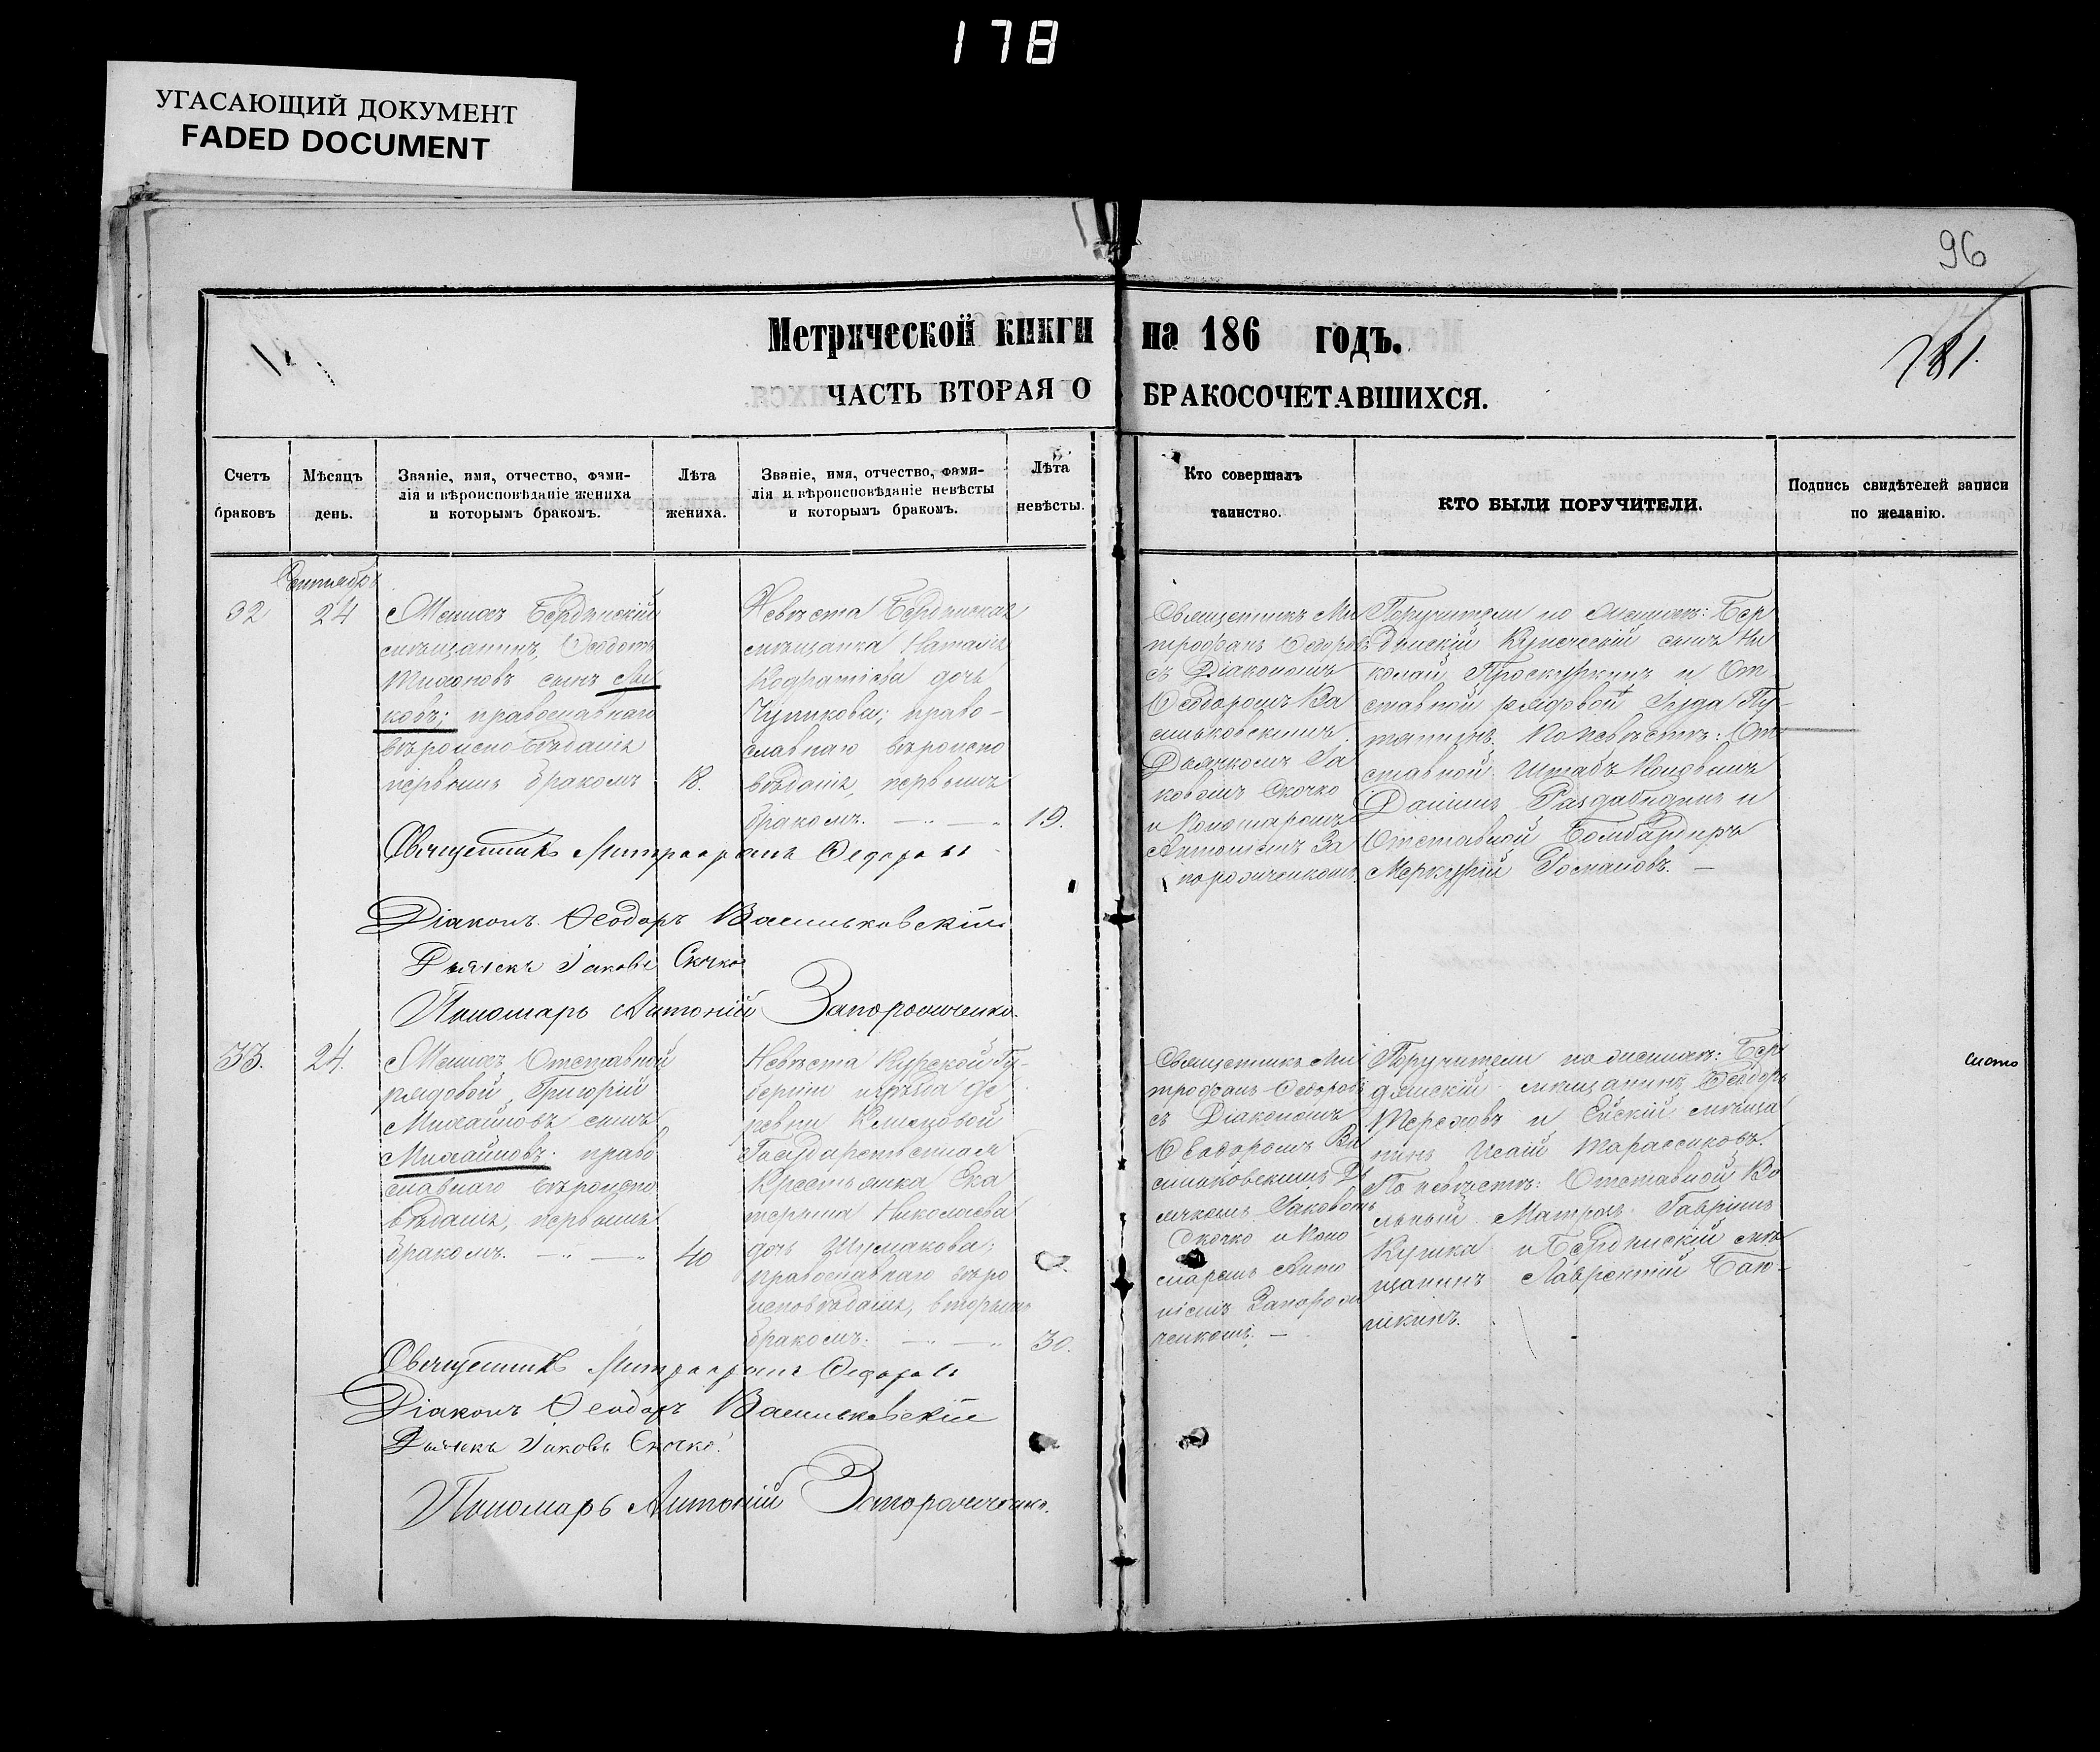 178
УГАСАЮЩИЙ ДОКУМЕНТ
FADED DOCUMENT
96
Метрической книги на 186 годъ.
181.
ЧАСТЬ ВТОРАЯ О БРАКОСОЧЕТАВШИХСЯ.
Счетъ
браковъ
Мѣсяцъ
день.
Званіе, имя, отчество, фами-
лія и вѣроисповѣданіе жениха
и которымъ бракомъ.
Лѣта
жениха.
Званіе, имя, отчество, фами-
лія и вѣроисповѣданіе невѣсты
и которымъ бракомъ.
Лѣта
невѣсты.
Кто совершалъ
таинство.
КТО БЫЛИ ПОРУЧИТЕЛИ.
Подпись свидѣтелей записи
по желанію.
Сентябрь
32
24
Женихъ Бердянскій
мѣщанинъ, Ѳеодотъ
сынъ
православнаго
вѣроисповѣданія
первымъ бракомъ
18.
Невѣста Бердянская
мѣщанка Наталія
Кодратіева дочь
Чупикова; право-
славнаго вѣроиспо
вѣданія, первымъ
бракомъ.
19.
Священникъ Ми
трофанъ Ѳедоровъ
съ Діакономъ
Ѳеодоромъ Ва
сильковскимъ
Дьячкомъ Іа
ковомъ Скочко
и Пономаремъ
Антоніемъ За
порожченкомъ.
Поручители по женихѣ: Бер
дянскій Купеческій сынъ Ни
колай Проскурнинъ и От
ставной рядовой Іуда Пу-
танинъ. По невѣстѣ: От
ставной Штабъ
Даніилъ и
Отставной Бомбардиръ
Меркурій Романовъ. —
Священникъ Митрофанъ Ѳедоровъ
Діаконъ Ѳеодоръ Васильковскій
Дьячекъ Іаковъ Скочко
Пономарь Антоній Запорожченко.
33.
24.
Женихъ Отставной
рядовой Григорій
Михайловъ сынъ
Михайловъ. право
славнаго вѣроиспо
вѣданія, первымъ
бракомъ.
40
Невѣста Курской Гу-
берніи уѣзда де
ревни
Государственная
Крестьянка Ека
терина Николаева
дочь Шумакова;
православнаго вѣро
исповѣданія, вторымъ
бракомъ.
30.
Священникъ Ми
трофанъ Ѳедоровъ
съ Діакономъ
Ѳеодоромъ Ва
сильковскимъ Дь
ячкомъ Іаковомъ
Скочко и Поно
маремъ Анто
ніемъ Запорож
ченкомъ. —
Поручители по женихѣ: Бер
дянскій мѣщанинъ Ѳеодоръ
Тереховъ и Ейскій мѣща
нинъ Исаій Тарасиковъ.
По невѣстѣ: Отставной Во
льный Матросъ Гавріилъ
Кушка и Бердянскій мѣ
щанинъ Лаврентій Баю-
шкинъ.
Священникъ Митрофанъ Ѳедоровъ
Діаконъ Ѳеодоръ Васильковскій
Дьячекъ Іаковъ Скочко.
Пономарь Антоній Запорожченко.